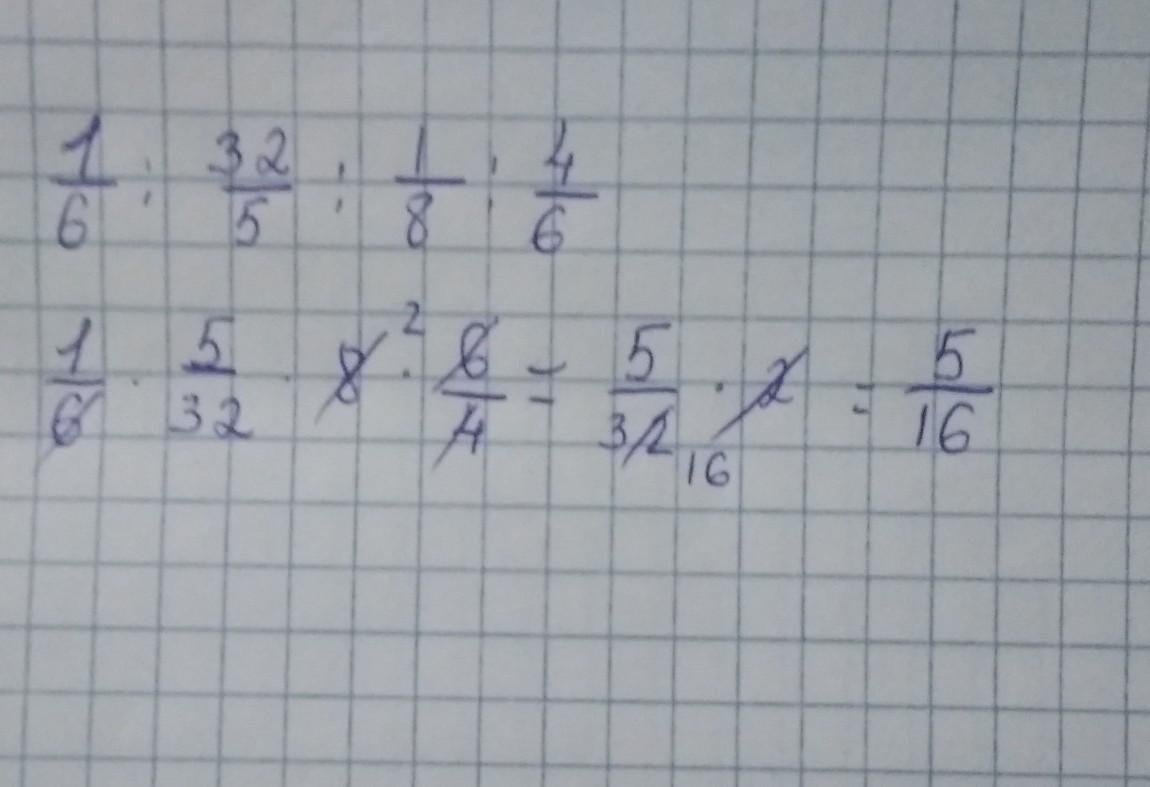 1/6 : 32/5 : 1/8 : 4/6
1/6 · 5/32 · 8 2 · 6/4 = 5/32 16 · 2 = 5/16